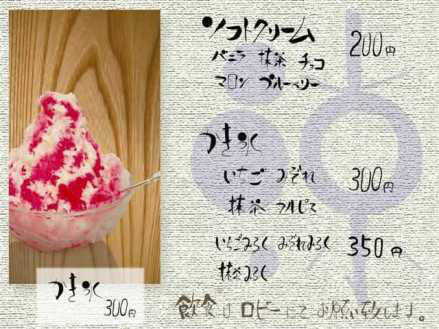 ソフトクリーム 200円
バニラ 抹茶 チョコ
マロン ブルーベリー
つき氷
いちご みぞれ 300円
抹茶 カルピス
いちごみるく みぞれみるく 350円
抹茶みるく
つき氷
300円
飲食はロビーにてお願い致します。